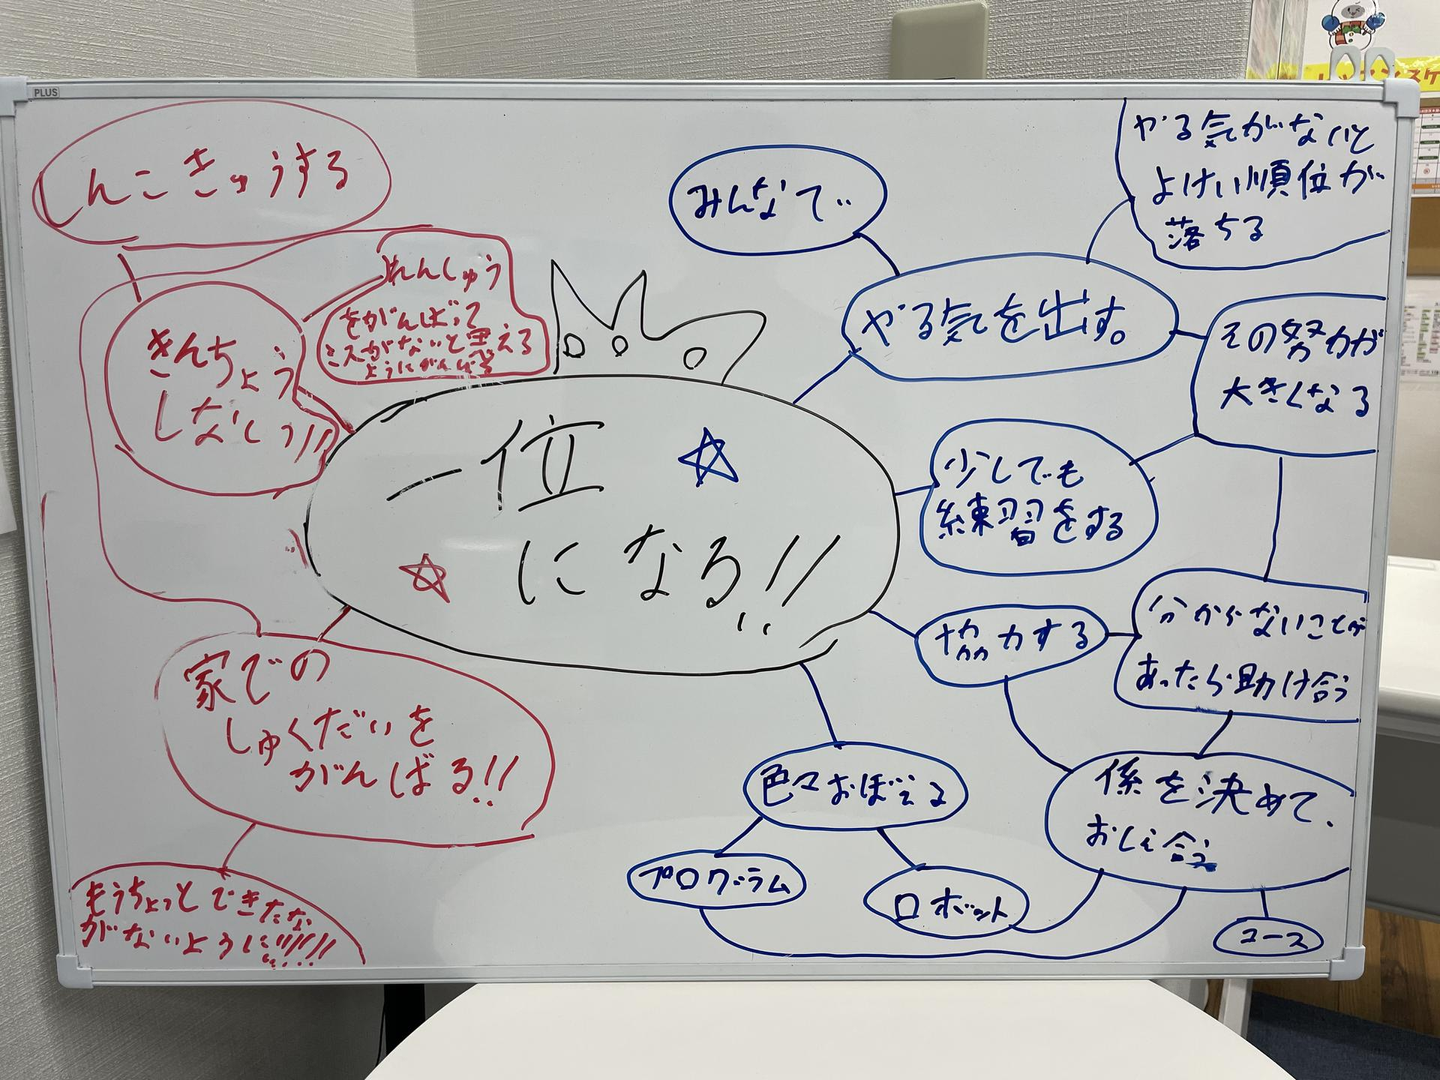 PLUS
しんこきゅうする
きんちょう
しない!!
れんしゅう
をがんばって
ミスがないと思える
ようにがんばる
一位
になる!!
家での
しゅくだいを
がんばる!!
もうちょっとできたな
がないように!!!!!
みんなで
やる気を出す。
やる気がないと
よけい順位が
落ちる
その努力が
大きくなる
少しでも
練習をする
協力する
分からないことが
あったら助け合う
係を決めて、
おしえ合う
コース
色々おぼえる
プログラム
ロボット